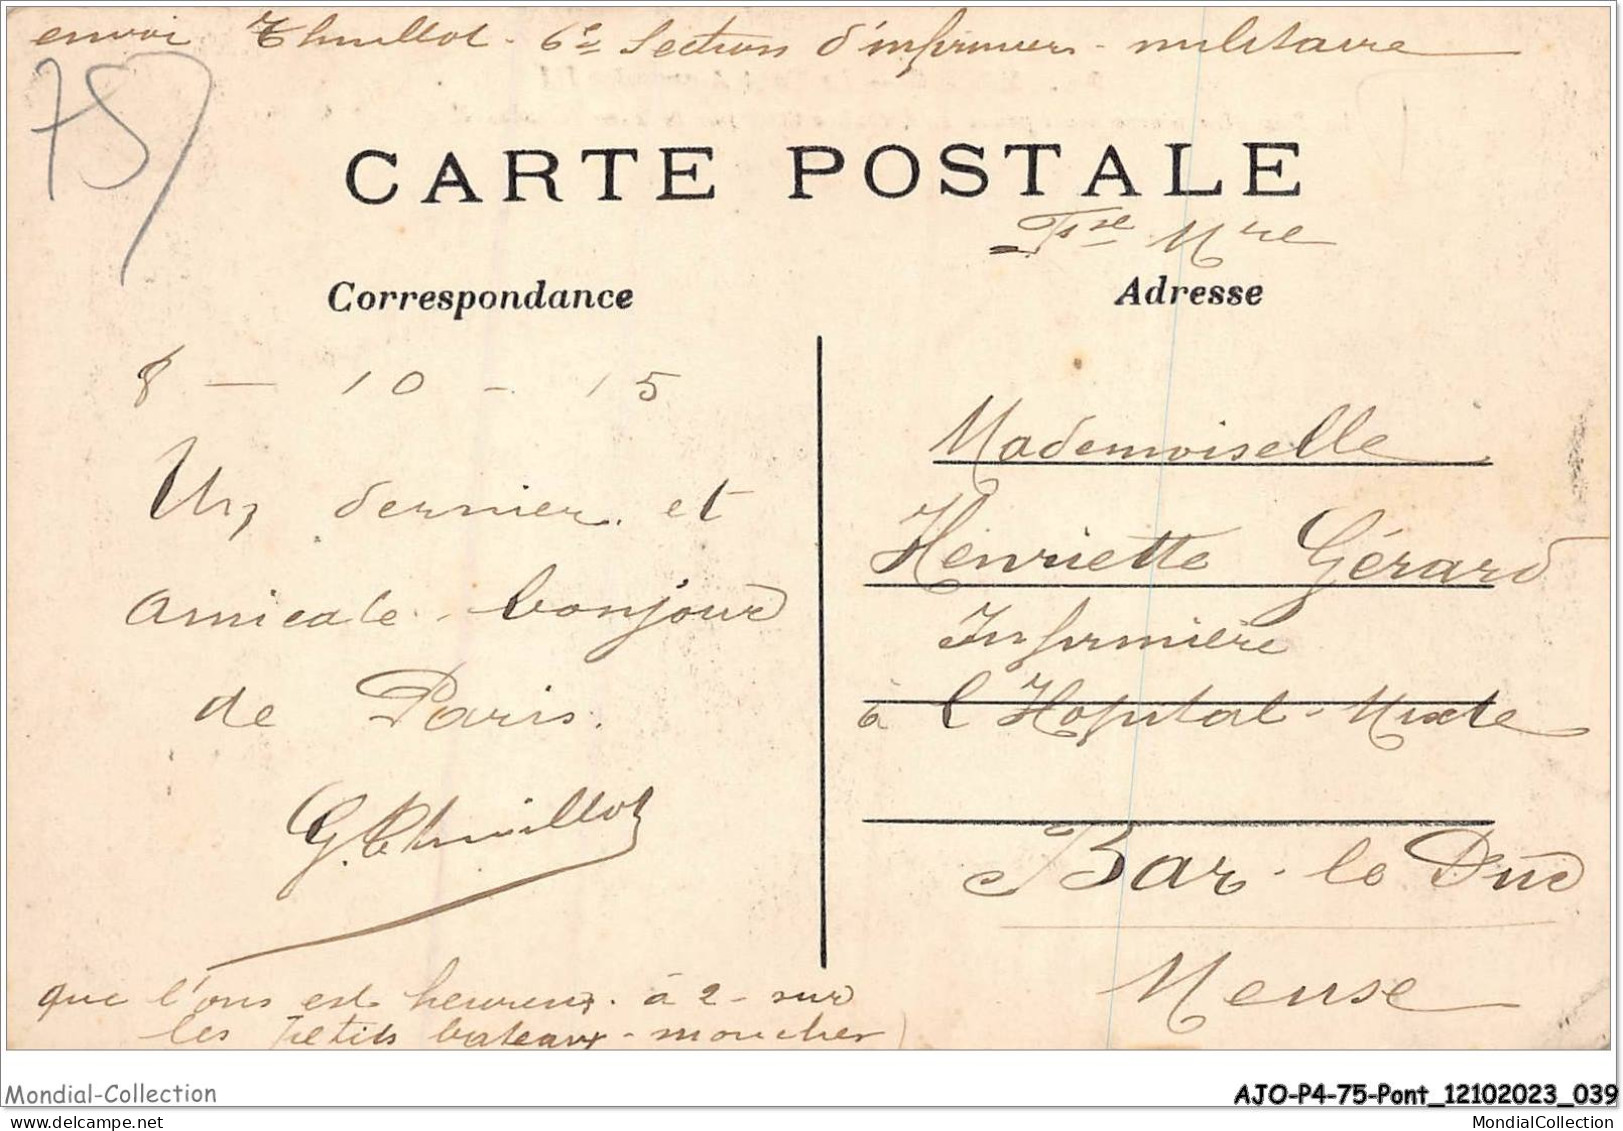 envoi Thuillot - 6e Section d'infirmiers - militaire
75
CARTE POSTALE
Fse Mre
Correspondance
Adresse
8 - 10 - 15
Un dernier et
amicale bonjour
de Paris.
G. Thuillot
que l'ons est heureux à 2 - sur
les petits bateaux - moucher
Mademoiselle
Henriette Gérard
Infirmière
à l'Hopital - Mixte
Bar - le Duc
Meuse
Mondial-Collection
AJO-P4-75-Pont_12102023_039
MondialCollection
MondialCollection